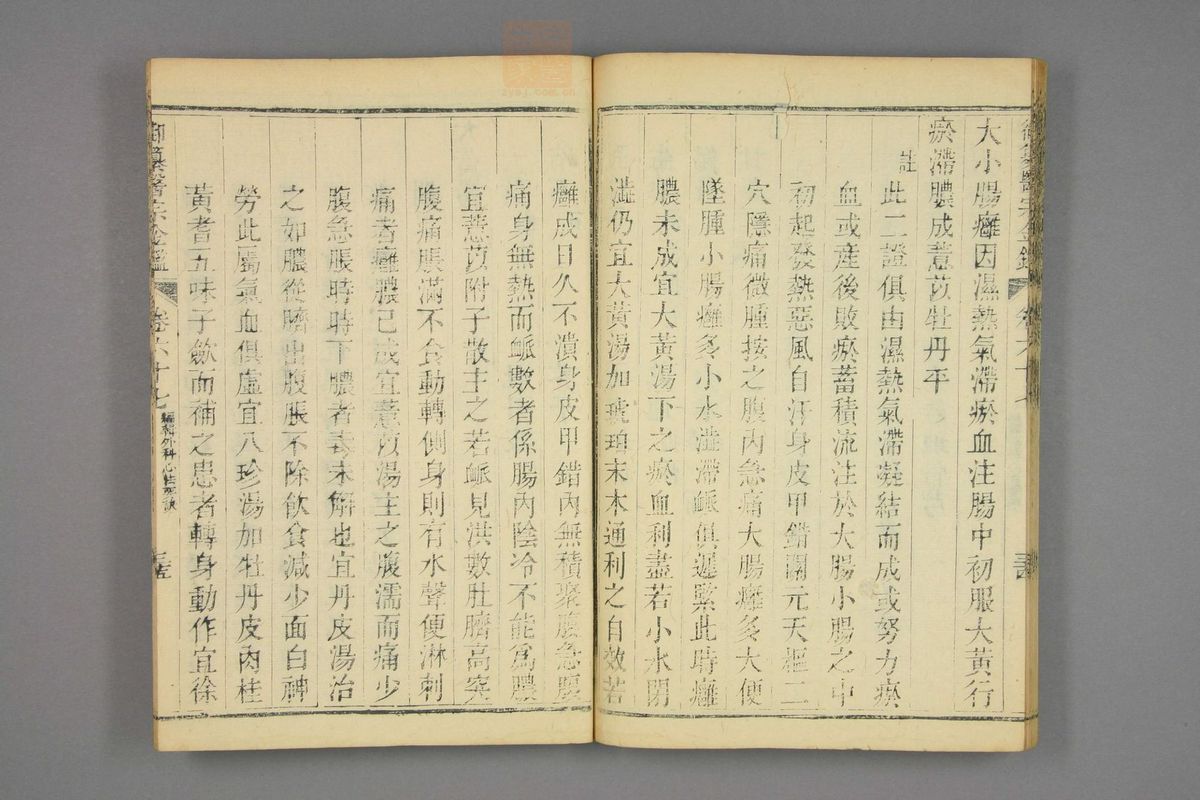 大小腸癰因濕熱氣滯瘀血注腸中初服大黃行
瘀滯膿成薏苡牡丹平
註
此二證俱由濕熱氣滯凝結而成或努力瘀
血或産後敗瘀蓄積流注於大腸小腸之中
初起發熱惡風自汗身皮甲錯關元天樞二
穴隱痛微腫按之腹內急痛大腸癰多大便
墜腫小腸癰多小水澁滯脈俱遲緊此時癰
膿未成宜大黃湯下之瘀血利盡若小水閉
澁仍宜大黃湯加琥珀末木通利之自效若
癰成日久不潰身皮甲錯內無積聚腹急腹
痛身無熱而脈數者係腸內陰冷不能爲膿
宜薏苡附子散主之若脈見洪數肚臍高突
腹痛脹滿不食動轉側身則有水聲便淋刺
痛者癰膿已成宜薏苡湯主之腹濡而痛少
腹急脹時時下膿者毒未解也宜丹皮湯治
之如膿從臍出腹脹不除飲食減少面白神
勞此屬氣血俱虛宜八珍湯加牡丹皮肉桂
黃耆五味子歛而補之患者轉身動作宜徐
御纂醫宗金鑑 卷六十七 編輯外科心法要訣